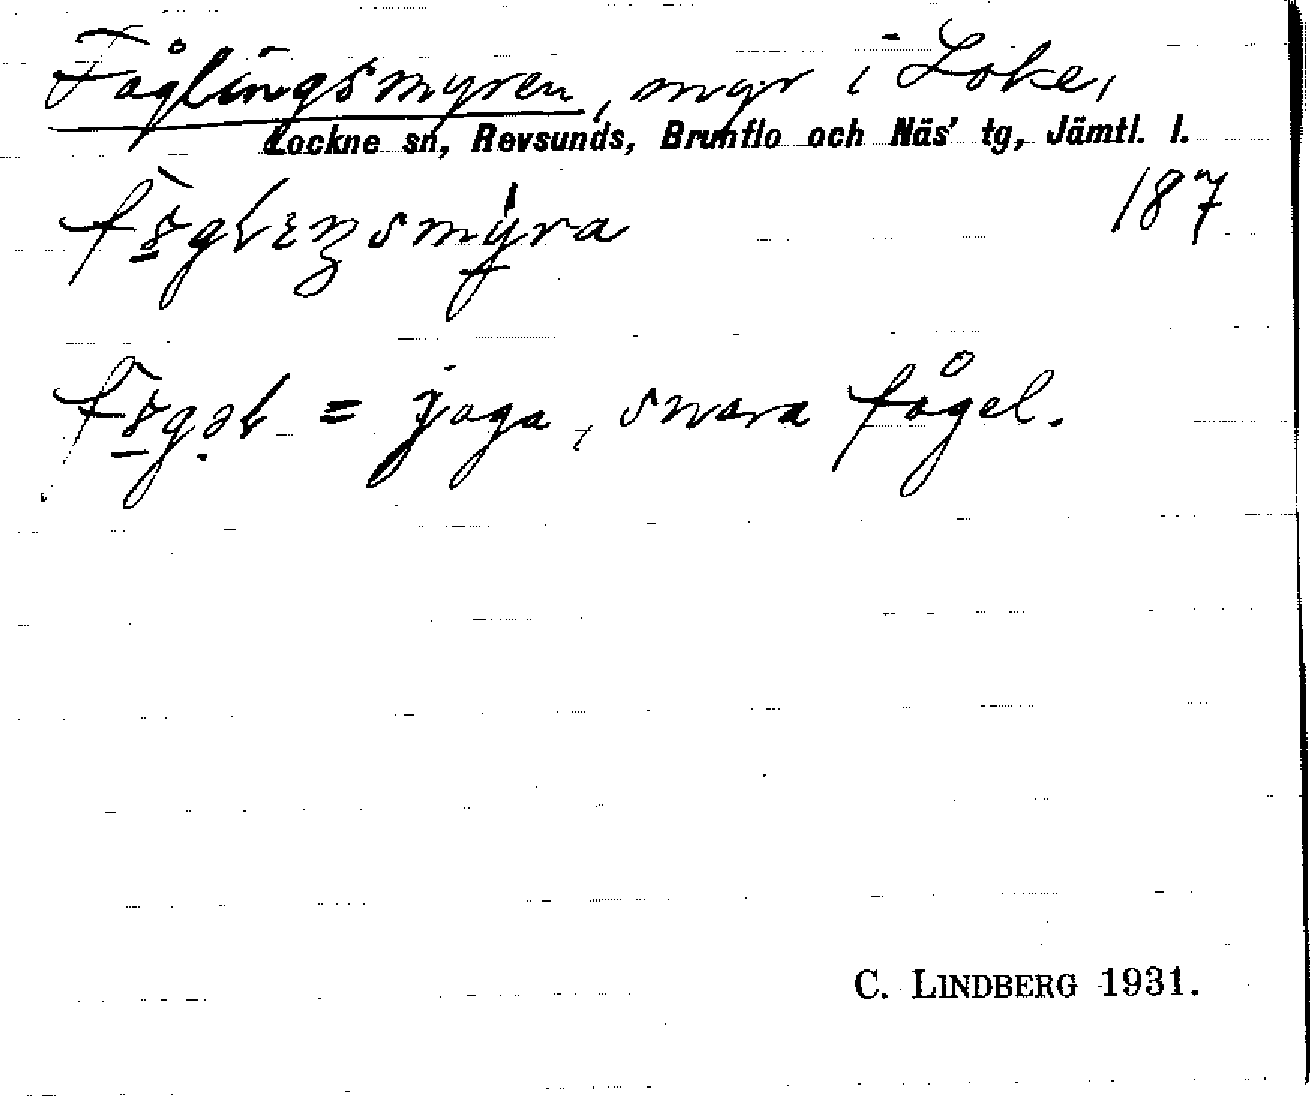 Fåglingsmyren, myr i Loke,
Lockne sn, Revsunds, Brunflo och Näs' tg, Jämtl. l.
187
= jaga, snara fågel.
C. LINDBERG 1931.